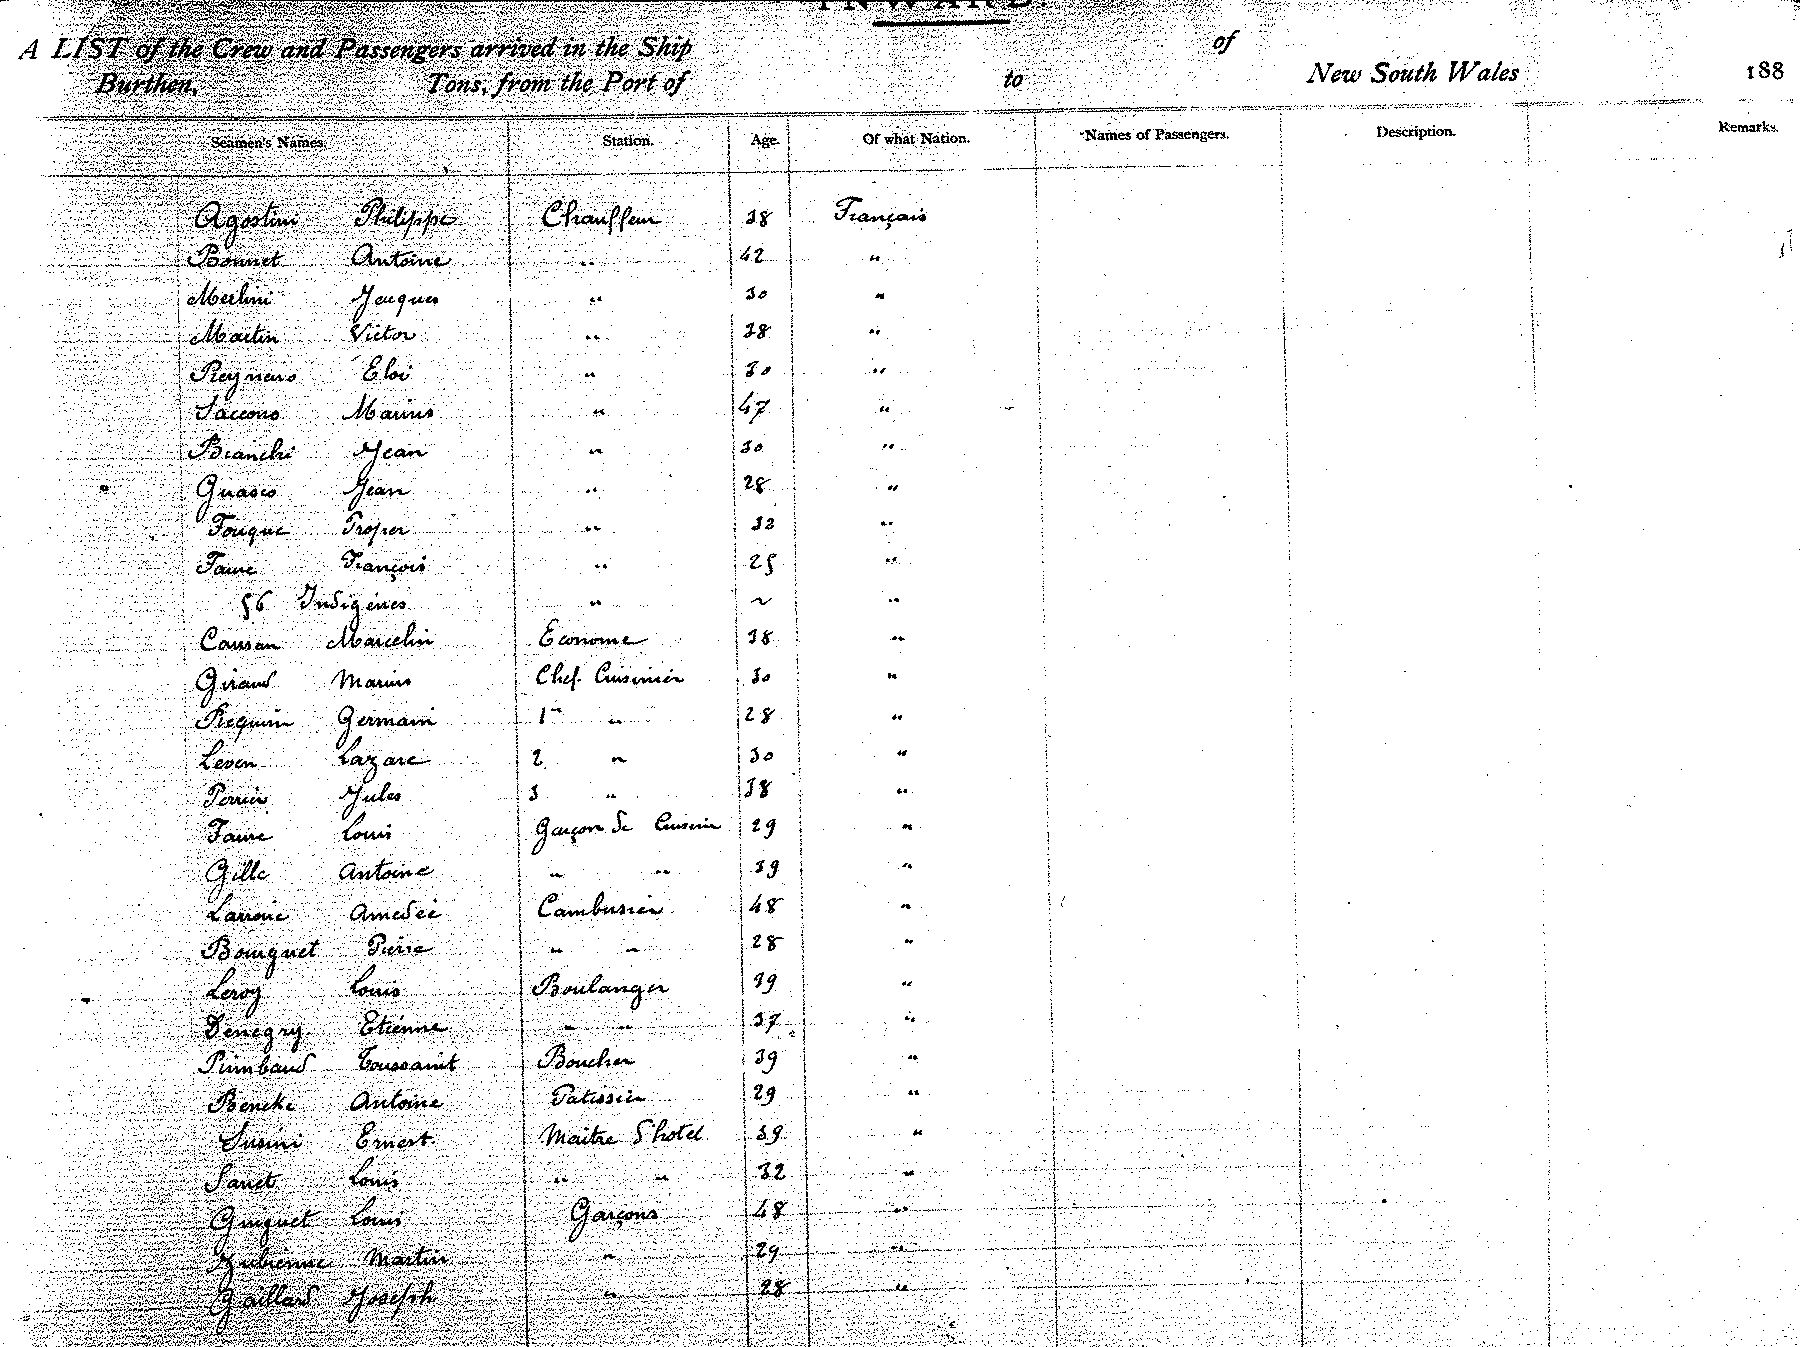 INWARD.
A LIST of the Crew and Passengers arrived in the Ship of
Burthen, Tons, from the Port of to New South Wales 188
Seamen's Names. Station. Age. Of what Nation. Names of Passengers. Description. Remarks.
Agostini Philippe Chauffeur 38 Français
Bonnet Antoine " 42 "
Merlini Jacques " 30 "
Martin Victor " 38 "
Reynero Eloi " 30 "
Saccono Marius " 47 "
Bianchi Jean " 30 "
Guasco Jean " 28 "
Fouque Prosper " 32 "
Faure François " 25 "
56 Indigènes " ~ "
Caussan Marcelin Econome 38 "
Giraud Marius Chef Cuisinier 30 "
Requin Germain 1er " 28 "
Leven Lazare 2 " 30 "
Perrier Jules 3 " 38 "
Faure Louis Garçon de Cuisine 29 "
Gille Antoine " " 39 "
Amedée Cambusier 48 "
Bouquet Pierre " " 28 "
Leroy Louis Boulanger 39 "
Denegry Etienne " " 37 "
Rimbaud Toussaint Boucher 39 "
Beneke Antoine Patissier 29 "
Susini Ernest Maitre d'hotel 39 "
Sanet Louis " " 32 "
Guiguet Louis Garçons 48 "
Martin " 29 "
Gaillard Joseph " 28 "